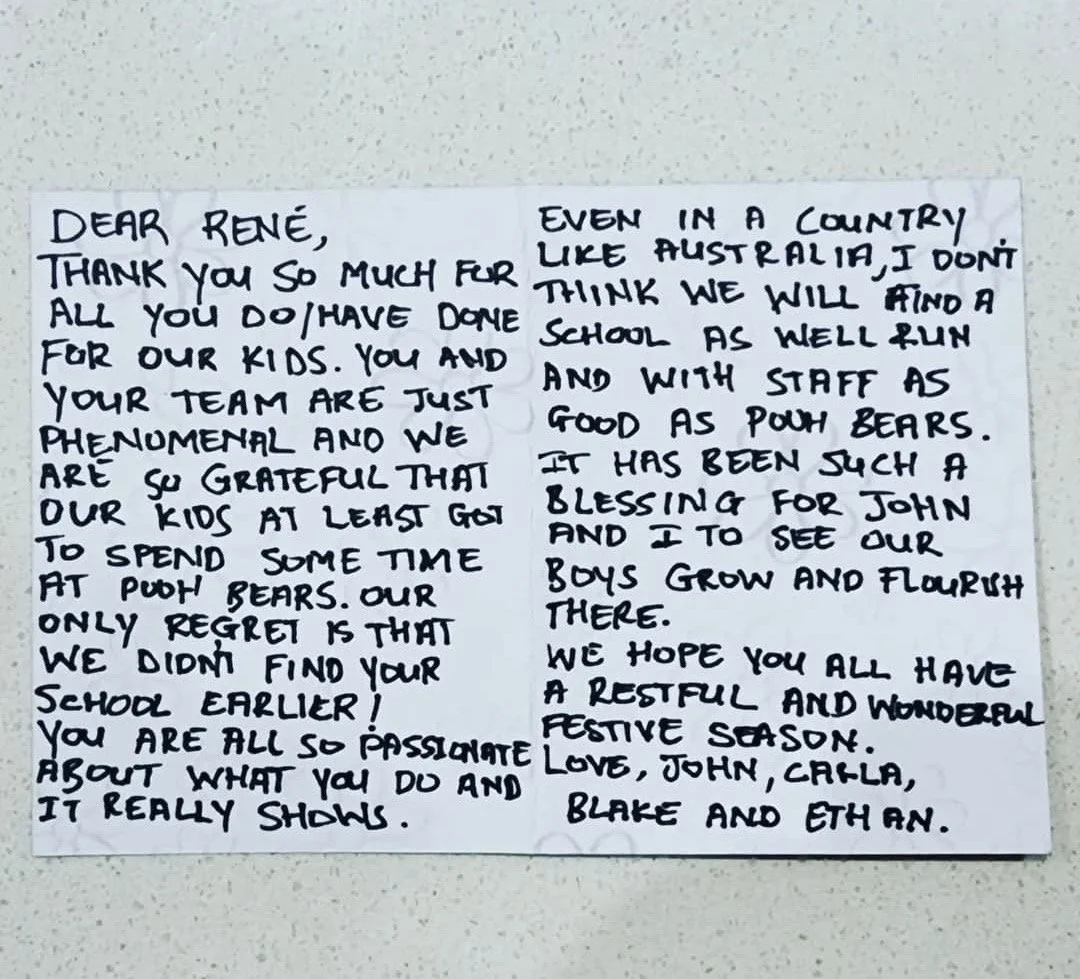 DEAR RENÉ,
THANK YOU SO MUCH FOR
ALL YOU DO/HAVE DONE
FOR OUR KIDS. YOU AND
YOUR TEAM ARE JUST
PHENOMENAL AND WE
ARE SO GRATEFUL THAT
OUR KIDS AT LEAST GOT
TO SPEND SOME TIME
AT POOH BEARS. OUR
ONLY REGRET IS THAT
WE DIDN'T FIND YOUR
SCHOOL EARLIER!
YOU ARE ALL SO PASSIONATE
ABOUT WHAT YOU DO AND
IT REALLY SHOWS.
EVEN IN A COUNTRY
LIKE AUSTRALIA, I DON'T
THINK WE WILL FIND A
SCHOOL AS WELL RUN
AND WITH STAFF AS
GOOD AS POOH BEARS.
IT HAS BEEN SUCH A
BLESSING FOR JOHN
AND I TO SEE OUR
BOYS GROW AND FLOURISH
THERE.
WE HOPE YOU ALL HAVE
A RESTFUL AND WONDERFUL
FESTIVE SEASON.
LOVE, JOHN, CARLA,
BLAKE AND ETHAN.